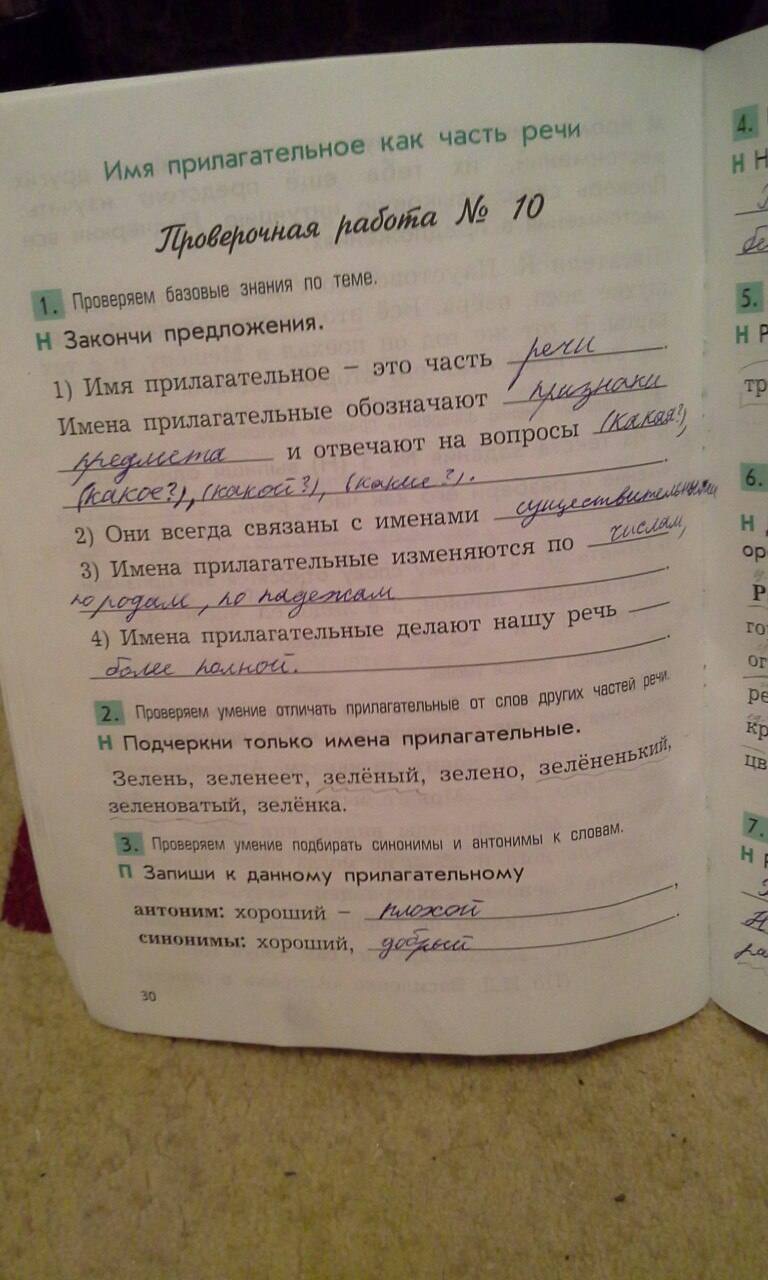 Имя прилагательное как часть речи
Проверочная работа № 10
1. Проверяем базовые знания по теме.
Н Закончи предложения.
1) Имя прилагательное – это часть речи.
Имена прилагательные обозначают признаки
предмета и отвечают на вопросы (какая?),
(какое?), (какой?), (какие?).
2) Они всегда связаны с именами существительными
3) Имена прилагательные изменяются по числам,
по родам, по падежам.
4) Имена прилагательные делают нашу речь
более полной.
2. Проверяем умение отличать прилагательные от слов других частей речи.
Н Подчеркни только имена прилагательные.
Зелень, зеленеет, зелёный, зелено, зелёненький,
зеленоватый, зелёнка.
3. Проверяем умение подбирать синонимы и антонимы к словам.
П Запиши к данному прилагательному
антоним: хороший – плохой,
синонимы: хороший, добрый.
30
4.
Н
5.
Н
тр
6.
Н
ор
го
ог
ре
кр
цв
7.
Н